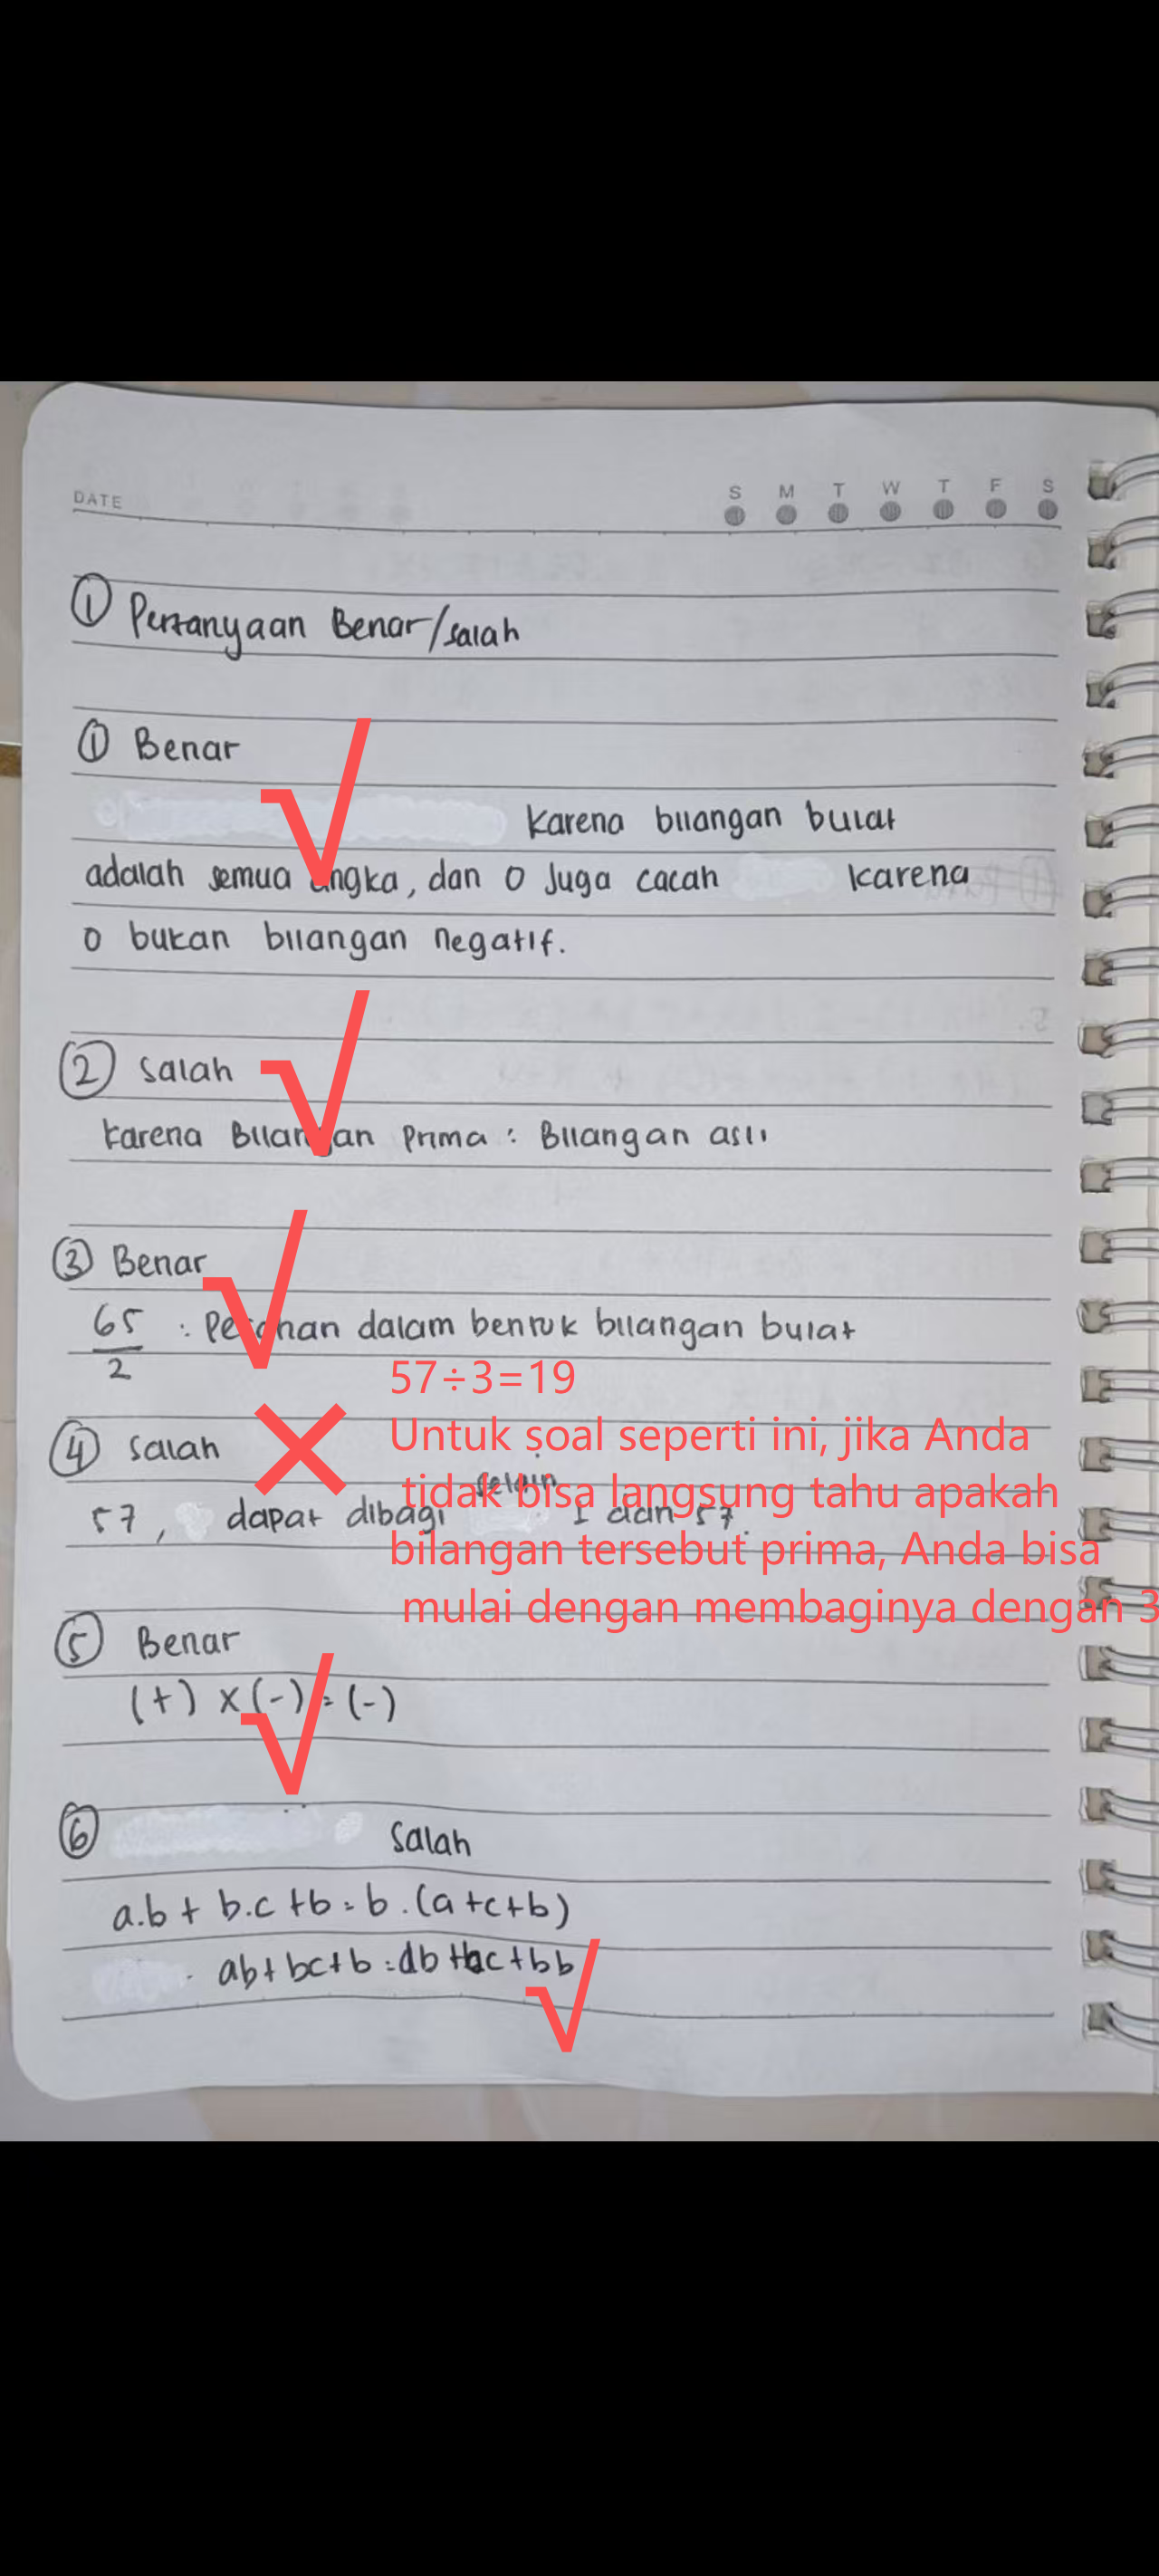 DATE
S M T W T F S
① Pertanyaan Benar/salah
① Benar
Karena bilangan bulat
adalah semua angka, dan 0 Juga cacah karena
0 bukan bilangan negatif.
② Salah
Karena Bilangan Prima : Bilangan asli
③ Benar
65/2 : Pecahan dalam bentuk bilangan bulat
57÷3=19
④ Salah
Untuk soal seperti ini, jika Anda
tidak bisa langsung tahu apakah
bilangan tersebut prima, Anda bisa
mulai dengan membaginya dengan 3
selain
57, dapat dibagi 1 dan 57.
⑤ Benar
(+) x (-) = (-)
⑥ Salah
a.b + b.c + b = b . (a + c + b)
ab + bc + b = + bb